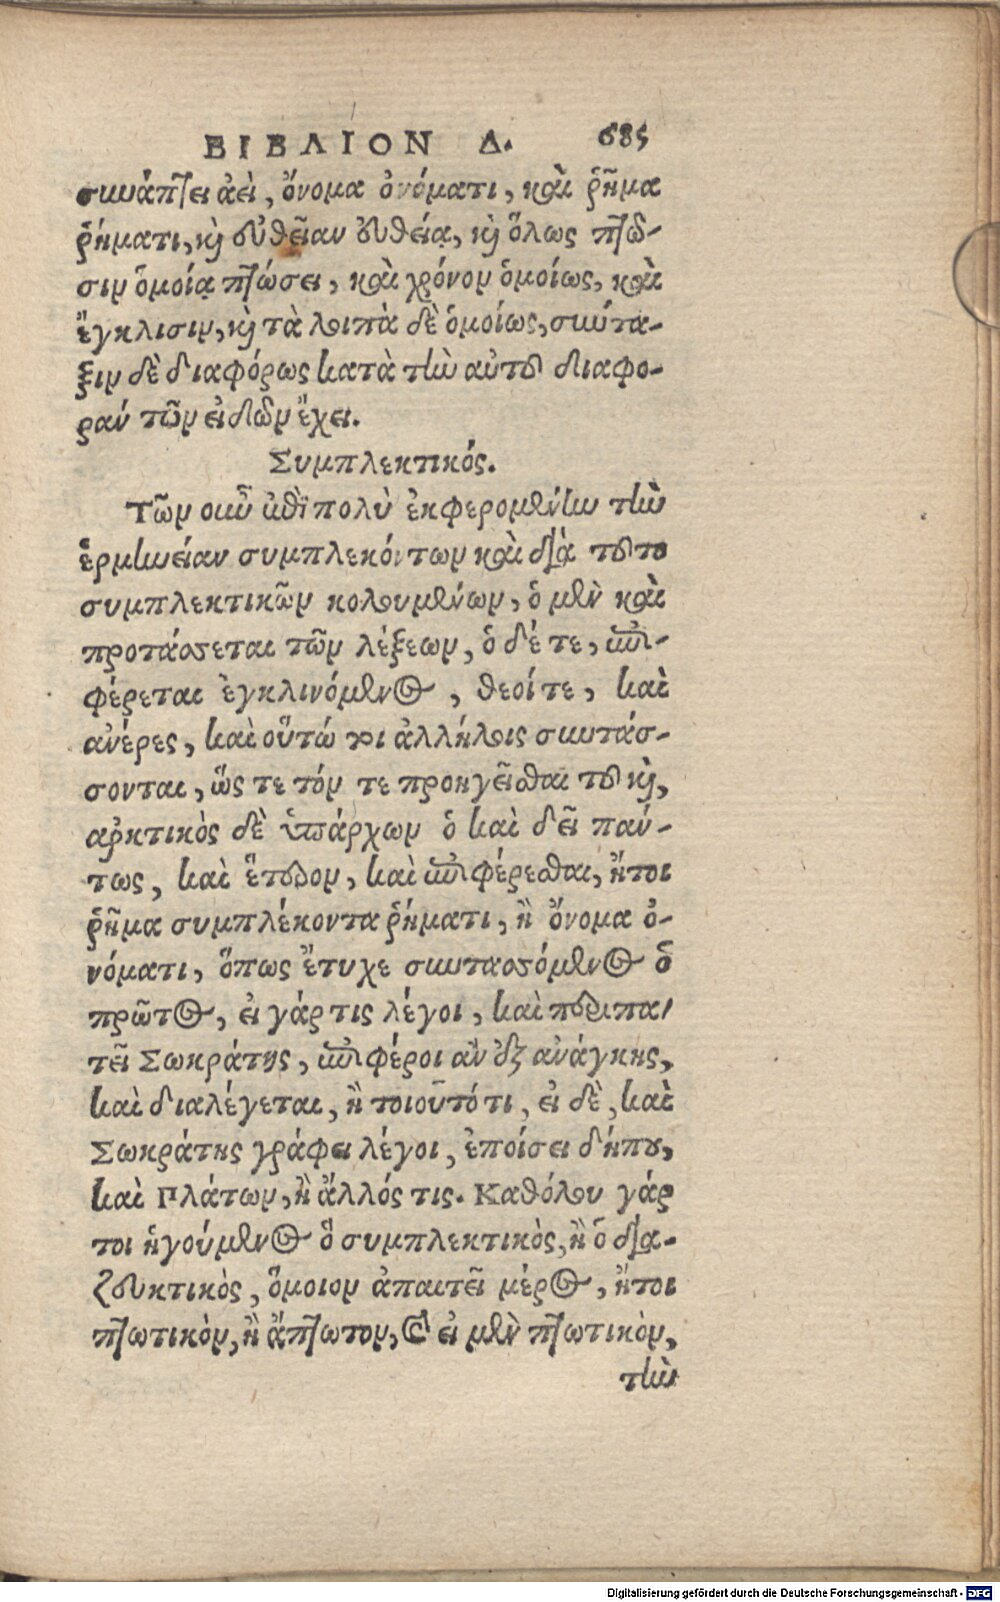 ΒΙΒΛΙΟΝ Δ. 685
συνάπτει ἀεὶ, ὄνομα ὀνόματι, καὶ ῥῆμα
ῥήματι, καὶ εὐθεῖαν εὐθείᾳ, καὶ ὅλως πτῶ-
σιν ὁμοίᾳ πτώσει, καὶ χρόνον ὁμοίως, καὶ
ἔγκλισιν, καὶ τὰ λοιπὰ δὲ ὁμοίως, σύντα-
ξιν δὲ διαφόρως κατὰ τὴν αὐτοῦ διαφο-
ράν τῶν εἰδῶν ἔχει.
Συμπλεκτικός.
Τῶν οὖν ἐπὶ πολὺ ἐκφερομένην τὴν
ἑρμηνείαν συμπλεκόντων καὶ διὰ τοῦτο
συμπλεκτικῶν καλουμένων, ὁ μὲν καὶ
προτάσσεται τῶν λέξεων, ὁ δέ τε, ἐπι-
φέρεται ἐγκλινόμενος, θεοί τε, καὶ
ἀνέρες, καὶ οὕτώ τοι ἀλλήλοις συντάσ-
σονται, ὥς τε τόν τε προηγεῖσθαι τοῦ καὶ,
ἀρκτικὸς δὲ ὑπάρχων ὁ καὶ δεῖ πάν-
τως, καὶ ἕτερον, καὶ ἐπιφέρεσθαι, ἤτοι
ῥῆμα συμπλέκοντα ῥήματι, ἢ ὄνομα ὀ-
νόματι, ὅπως ἔτυχε συντασσόμενος ὁ
πρῶτος, εἰ γάρ τις λέγοι, καὶ περιπα-
τεῖ Σωκράτης, ἐπιφέροι ἀν ἐξ ἀνάγκης,
καὶ διαλέγεται, ἢ τοιοῦτό τι, εἰ δὲ, καὶ
Σωκράτης γράφει λέγοι, ἐποίσει δήπου,
καὶ Πλάτων, ἢ ἄλλός τις. Καθόλου γάρ
τοι ἡγούμενος ὁ συμπλεκτικὸς, ἢ ὁ δια-
ζευκτικὸς, ὅμοιον ἀπαιτεῖ μέρος, ἤτοι
πτωτικὸν, ἢ ἄπτωτον, καὶ εἰ μὲν πτωτικὸν,
τὴν
Digitalisierung gefördert durch die Deutsche Forschungsgemeinschaft - DFG